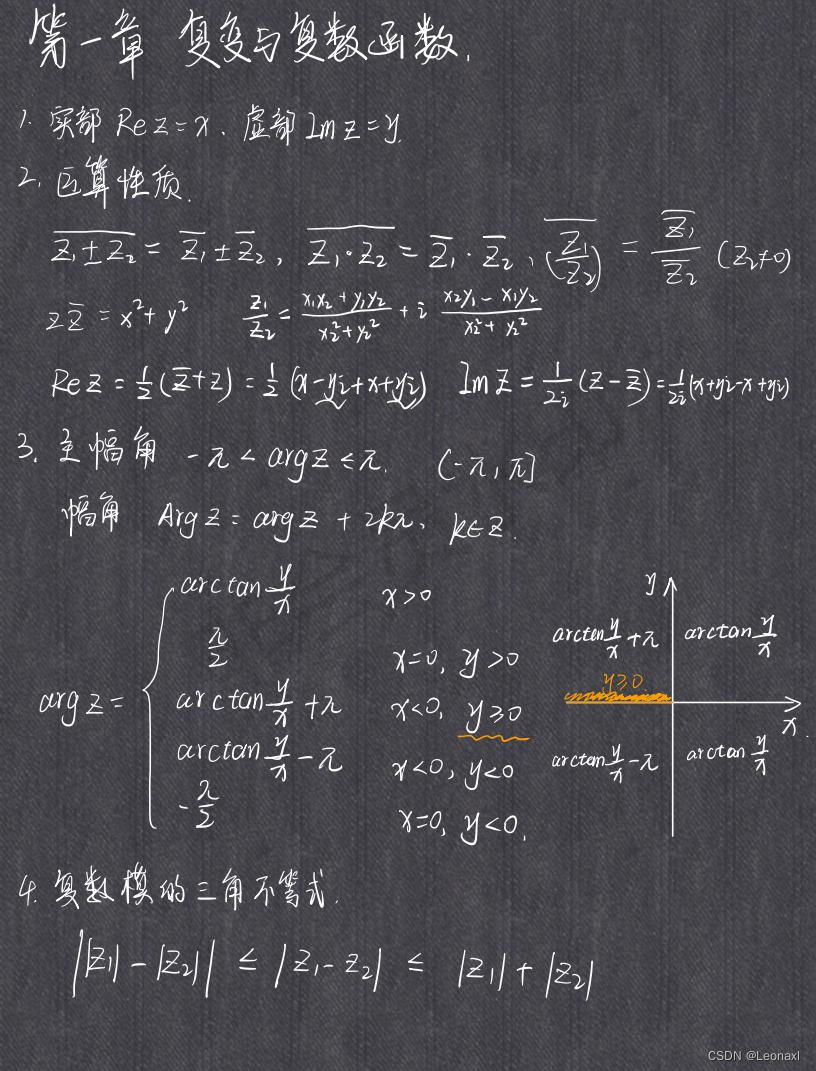 第一章 复变与复数函数.
1. 实部 Re z = x、虚部 Im z = y.
2. 运算性质.
\overline{z₁ ± z₂} = \overline{z₁} ± \overline{z₂}, \overline{z₁·z₂} = \overline{z₁}·\overline{z₂}、\overline{(z₁/z₂)} = \overline{z₁}/\overline{z₂} (z₂≠0)
z\overline{z} = x² + y² z₁/z₂ = (x₁x₂ + y₁y₂)/(x₂² + y₂²) + i (x₂y₁ − x₁y₂)/(x₂² + y₂²)
Re z = 1/2 (\overline{z} + z) = 1/2 (x − yi + x + yi) Im z = 1/2i (z − \overline{z}) = 1/2i (x + yi − x + yi)
3. 主幅角 −π < arg z ≤ π. (−π, π]
幅角 Arg z = arg z + 2kπ、 k∈Z.
arg z = {
arctan y/x x>0
π/2 x=0, y>0
arctan y/x + π x<0, y≥0
arctan y/x − π x<0, y<0
−π/2 x=0, y<0.
y
arctan y/x + π arctan y/x
y≥0
x.
arctan y/x − π arctan y/x
4. 复数模的三角不等式.
||z₁| − |z₂|| ≤ |z₁ − z₂| ≤ |z₁| + |z₂|
CSDN @Leonaxl